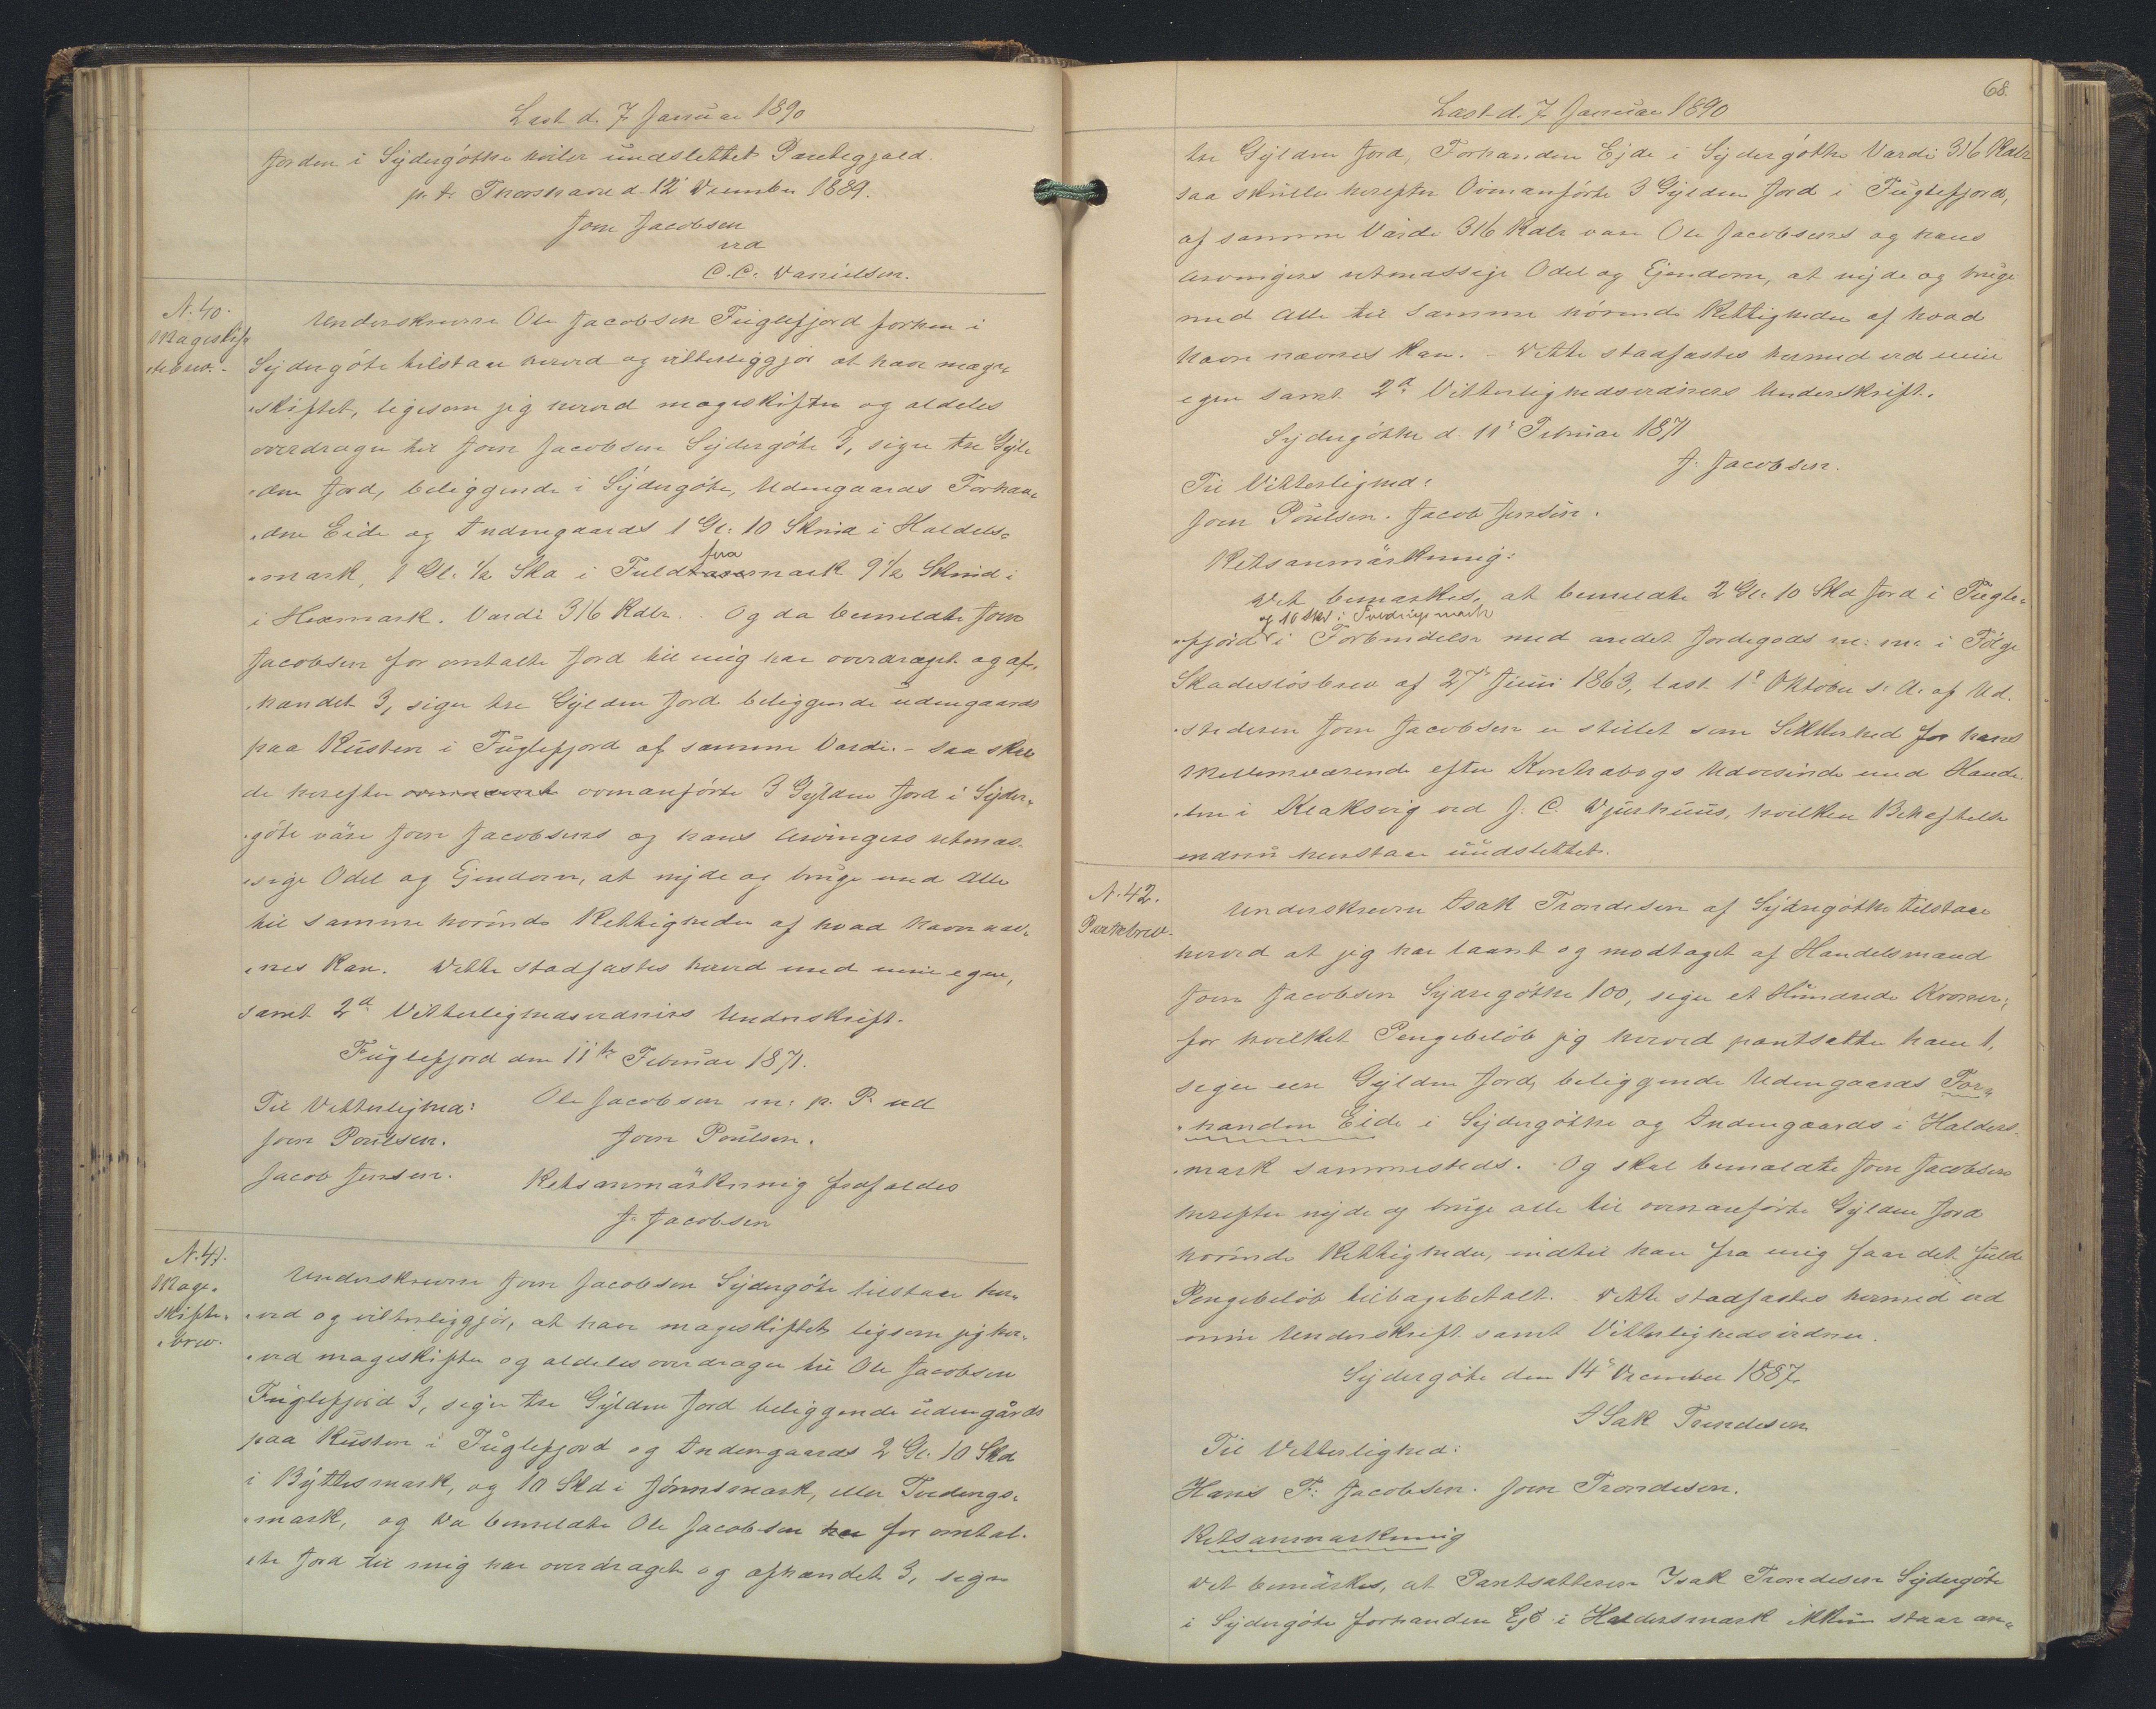 Læst d. 7 Januar 1890
Jorden i Sydergøthe hviler udslettet Pantegjæld.
p. t. Thorshavn d. 12' December 1889.
Joen Jacobsen
ved
C. C. Danielsen.
N. 40.
Mageskif
tebrev.
Underskrevne Ole Jacobsen Fuglefjord forhen i
Sydergøte tilstaar herved og vitterliggjør at have mage
skiftet, ligesom jeg herved mageskifter og aldeles
overdrager til Joen Jacobsen Sydergøte 3, siger tre Gyl
den Jord, beliggende i Sydergøte, Udengaards Forhan
den Eide og Indengaards 1 Gl. 10 Sknd i Haldets
mark, 1 Gl. ½ Skd i Fuldtra mark 9½ Sknd i
i Hexmark. Værdi 316 Rdlr. Og da bemeldte Joen
Jacobsen for omtalte Jord til mig har overdraget og af
handet 3, siger tre Gylden Jord beliggende udengaards
paa Kusten i Fuglefjord af samme Værdi. – saa skul
de herefter ovenanførte 3 Gylden Jord i Syder
gøte være Joen Jacobsens og hans Arvingers retmæs
sige Odel og Ejendom, at nyde og bruge med Alle
til samme hørende Rettigheder af hvad Navn næv
nes kan. Dette stadfæstes herved med min egen,
samt 2de Vitterlighedsvidners Underskrift.
Fuglefjord den 11te Februar 1871.
Til Vitterlighed: Ole Jacobsen m. p. P. ved
Joen Poulsen. Joen Poulsen.
Jacob Jensen. Retsanmærkning frafaldes
J. Jacobsen
N. 41.
Mage
skifte
brev.
Underskrevne Joen Jacobsen Sydergøte tilstaar her
ved og vitterliggjør, at have mageskiftet ligesom jeg her
ved mageskifter og aldeles overdrager til Ole Jacobsen
Fuglefjord 3, siger tre Gylden Jord beliggende udengårds
paa Kusten i Fuglefjord og Indengaards 2 Gl. 10 Skd
i Byttesmark, og 10 Skd i Jonnsmark, eller Tvedings
mark, og da bemeldte Ole Jacobsen har for omtal
te Jord til mig har overdraget og afhændet 3, siger
68.
Læst d. 7 Januar 1890
tre Gylden Jord, Forhanden Ejde i Sydergøthe Værdi 316 Rdlr
saa skulle herefter Ovenanførte 3 Gylden Jord i Fuglefjord,
af samme Værdi 316 Rdlr være Ole Jacobsens og hans
Arvingers retmæssige Odel og Ejendom, at nyde og bruge
med Alle til samme hørende Rettigheder af hvad
Navn nævnes kan. – Dette stadfæstes hermed ved min
egen samt 2de Vitterlighedsvidners Underskrift.
Sydergøthe d. 11' Februar 1871
J. Jacobsen.
Til Vitterlighed:
Joen Poulsen. Jacob Jensen.
Retsanmærkning:
Det bemærkes, at bemeldte 2 Gl. 10 Skd Jord i Fugle
og 10 Skd i Tvedingsmark
fjord i Forbindelse med andet Jordegods m. m. i Følge
Skadesløsbrev af 27' Juni 1863, læst 1' Oktober s. A. af Ud
stederen Joen Jacobsen er stillet som Sikkerhed for hans
Mellemværende efter Kontrabogs Udvisende med Hande
len i Klaksvig ved J. C. Djurhuus, hvilken Behæftelse
endnu henstaar uudslettet.
N. 42.
Pantebrev.
Underskrevne Isak Trondesen af Sydregøthe tilstaar
herved at jeg har laant og modtaget af Handelsmand
Joen Jacobsen Sydregøthe 100, siger et Hundrede Kroner,
for hvilket Pengebeløb jeg herved pantsætter ham 1,
siger een Gylden Jord, beliggende Udengaards For
handen Eide i Sydergøthe og Indengaards i Halders
mark sammesteds. Og skal bemældte Joen Jacobsen
herefter nyde og bruge alle til ovenanførte Gylden Jord
hørende Rettigheder, indtil han fra mig faar det fulde
Pengebeløb tilbagebetalt. Dette stadfæstes hermed ved
min Underskrift samt Vitterlighedsvidner.
Sydergøte den 14' December 1887.
ISak Trondesen
Til Vitterlighed:
Hans F. Jacobsen. Joen Trondesen.
Retsanmærkning
Det bemærkes, at Pantsætteren Isak Trondesen Sydergøte
i Sydergøte forhanden Ejd i Haldersmark ikkun staar an